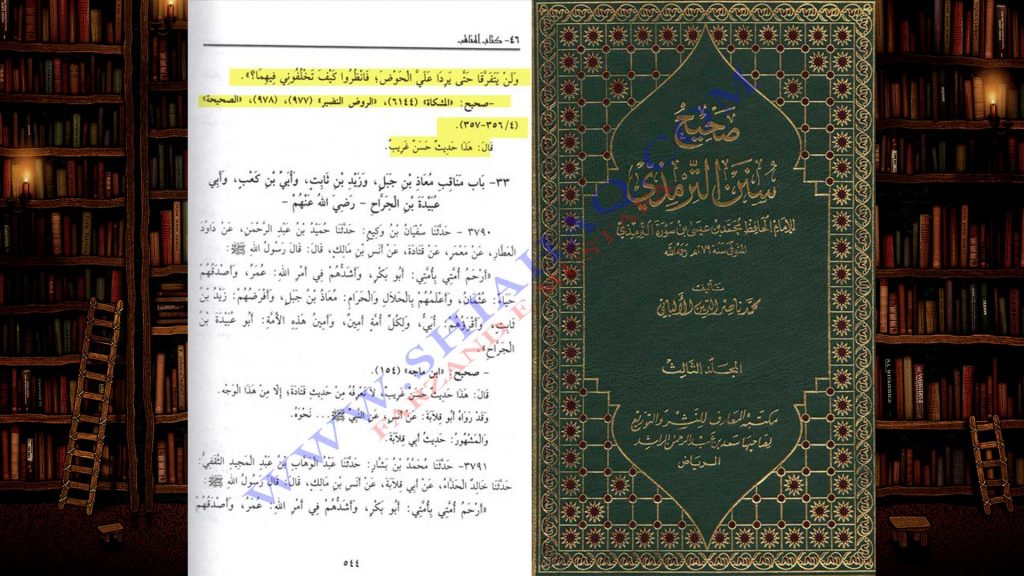 ٤٦- كتاب المناقب
وَلَنْ يَتَفَرَّقَا حَتَّى يَرِدَا عَلَيَّ الْحَوْضَ؛ فَانْظُرُوا كَيْفَ تَخْلُفُونِي فِيهِمَا؟».
-صحيح: «المشكاة» (٦١٤٤)، «الروض النضير» (٩٧٧)، (٩٧٨)، «الصحيحة»
(٤/ ٣٥٦-٣٥٧).
قَالَ: هَذَا حَدِيثٌ حَسَنٌ غَرِيبٌ.
٣٣- بَاب مَنَاقِبِ مُعَاذِ بْنِ جَبَلٍ، وَزَيْدِ بْنِ ثَابِتٍ، وَأُبَيِّ بْنِ كَعْبٍ، وَأَبِي
عُبَيْدَةَ بْنِ الْجَرَّاحِ - رَضِيَ اللهُ عَنْهُمْ -
٣٧٩٠- حَدَّثَنَا سُفْيَانُ بْنُ وَكِيعٍ: حَدَّثَنَا حُمَيْدُ بْنُ عَبْدِ الرَّحْمَنِ، عَنْ دَاوُدَ
الْعَطَّارِ، عَنْ مَعْمَرٍ، عَنْ قَتَادَةَ، عَنْ أَنَسِ بْنِ مَالِكٍ، قَالَ: قَالَ رَسُولُ اللهِ ﷺ:
«أَرْحَمُ أُمَّتِي بِأُمَّتِي: أَبُو بَكْرٍ، وَأَشَدُّهُمْ فِي أَمْرِ اللهِ: عُمَرُ، وَأَصْدَقُهُمْ
حَيَاءً: عُثْمَانُ، وَأَعْلَمُهُمْ بِالْحَلَالِ وَالْحَرَامِ: مُعَاذُ بْنُ جَبَلٍ، وَأَفْرَضُهُمْ: زَيْدُ بْنُ
ثَابِتٍ، وَأَقْرَؤُهُمْ: أُبَيٌّ، وَلِكُلِّ أُمَّةٍ أَمِينٌ، وَأَمِينُ هَذِهِ الْأُمَّةِ: أَبُو عُبَيْدَةَ بْنُ
الْجَرَّاحِ».
- صحيح: «ابن ماجه» (١٥٤).
قَالَ: هَذَا حَدِيثٌ حَسَنٌ غَرِيبٌ، لَا نَعْرِفُهُ مِنْ حَدِيثِ قَتَادَةَ؛ إِلَّا مِنْ هَذَا الْوَجْهِ.
وَقَدْ رَوَاهُ أَبُو قِلَابَةَ: عَنْ أَنَسٍ، عَنِ النَّبِيِّ ﷺ.... نَحْوَهُ.
وَالْمَشْهُورُ: حَدِيثُ أَبِي قِلَابَةَ.
٣٧٩١- حَدَّثَنَا مُحَمَّدُ بْنُ بَشَّارٍ: حَدَّثَنَا عَبْدُ الْوَهَّابِ بْنُ عَبْدِ الْمَجِيدِ الثَّقَفِيُّ:
حَدَّثَنَا خَالِدٌ الْحَذَّاءُ، عَنْ أَبِي قِلَابَةَ، عَنْ أَنَسِ بْنِ مَالِكٍ، قَالَ: قَالَ رَسُولُ اللهِ ﷺ:
«أَرْحَمُ أُمَّتِي بِأُمَّتِي: أَبُو بَكْرٍ، وَأَشَدُّهُمْ فِي أَمْرِ اللهِ: عُمَرُ، وَأَصْدَقُهُمْ
٥٤٤
صَحِيحُ
سُنَنِ التِّرْمِذِيِّ
للإمام الحافظ محمد بن عيسى بن سورة الترمذي
المتوفى سنة ٢٧٩هـ رحمه الله
تأليف
محمد ناصر الدين الألباني
المجلد الثالث
مكتبة المعارف للنشر والتوزيع
لصاحبها سعد بن عبد الرحمن الراشد
الرياض